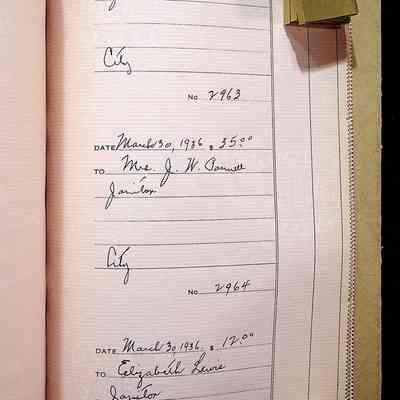 City
No 2963
DATE March 30, 1936 $ 35.00
TO Mrs. J. W. Pannell
Janitor
City
No 2964
DATE March 30, 1936. $ 12.00
TO Elizabeth Lewis
Janitor